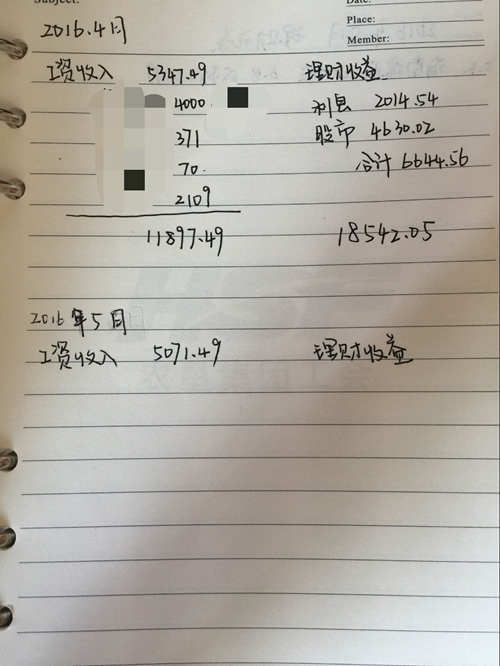 Subject:
Date:
Place:
Member:
2016.4月
工资收入 5347.49 理财收益
4000 利息 2014.54
371 股市 4630.02
70 合计 6644.56
2109
11897.49 18542.05
2016年5月
工资收入 5071.49 理财收益